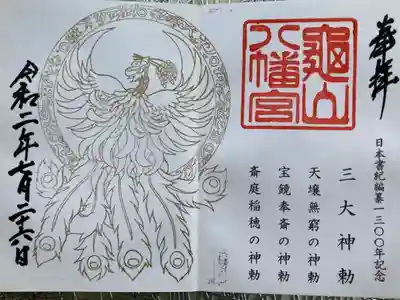 奉拝
日本書紀編纂一三〇〇年記念
龜山
八幡宮
三大神勅
天壌無窮の神勅
宝鏡奉斎の神勅
斎庭稲穂の神勅
令和二年七月二十六日